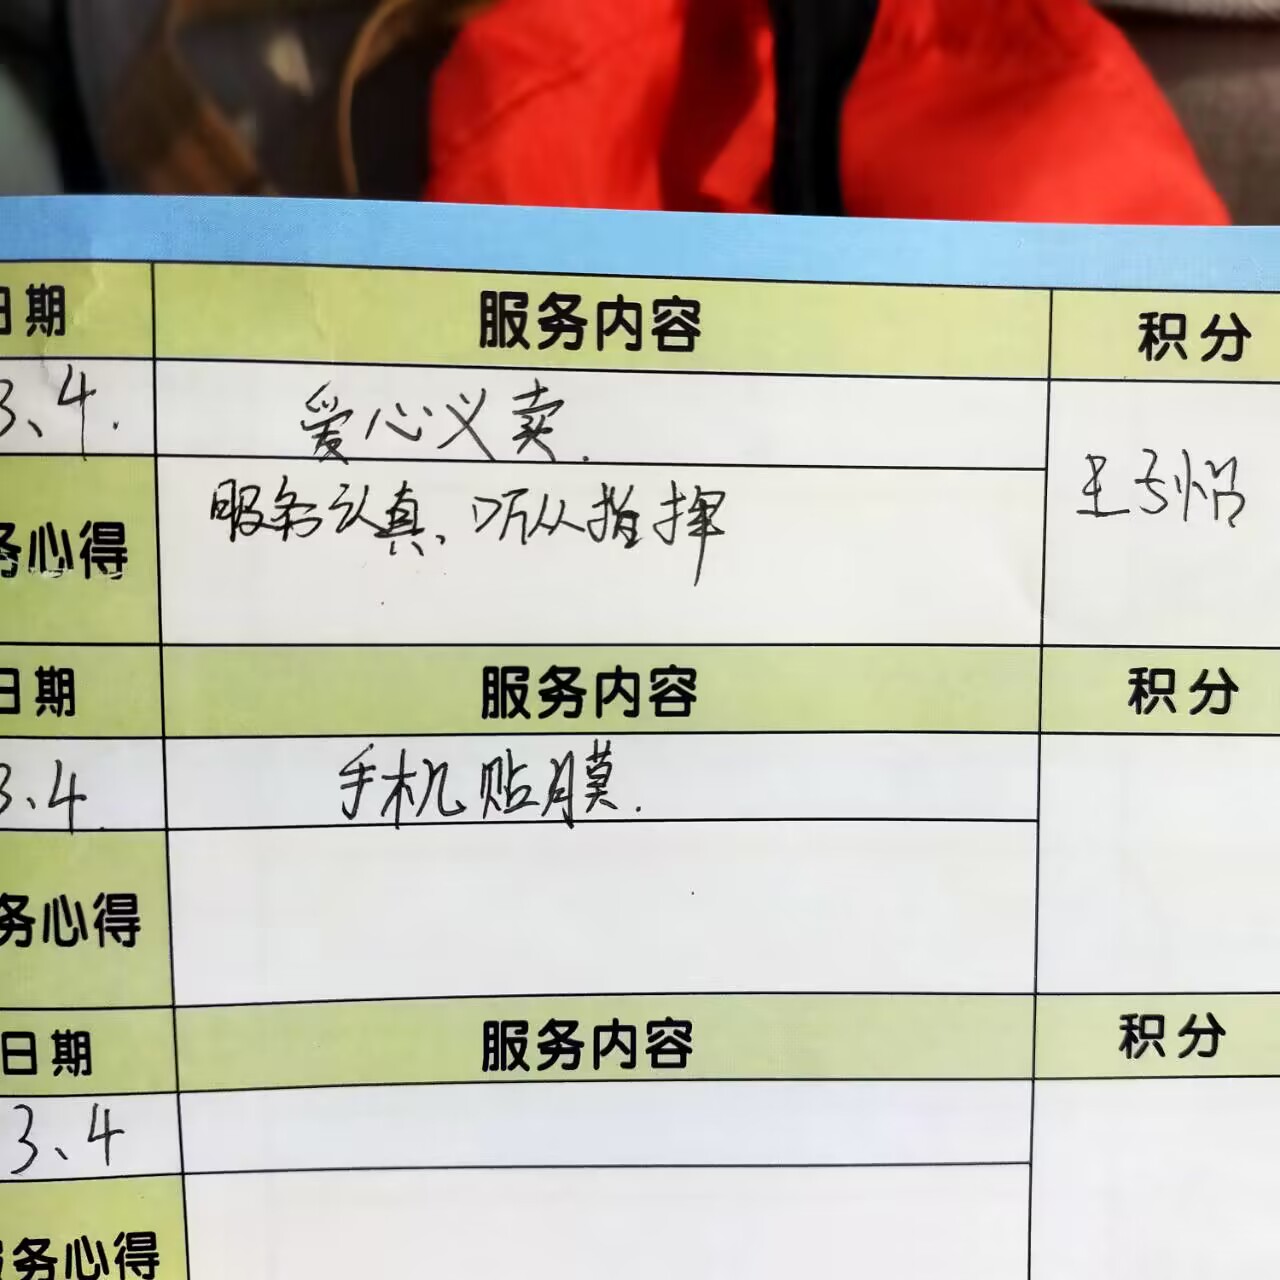 日期 服务内容 积分
3、4. 爱心义卖.
务心得 服务认真、听从指挥 王子怡
日期 服务内容 积分
3、4. 手机贴膜.
务心得
日期 服务内容 积分
3、4
服务心得